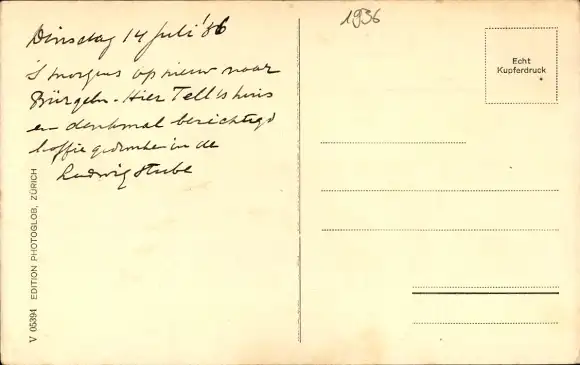 Dinsdag 14 Juli '36
'S morgens op nieuw naar
Bürgeln. Hier Tell's huis
en denkmal bezichtigd
koffie gedronken in de
Ludwigstube
1936
Echt
Kupferdruck
V 05394 EDITION PHOTOGLOB, ZÜRICH